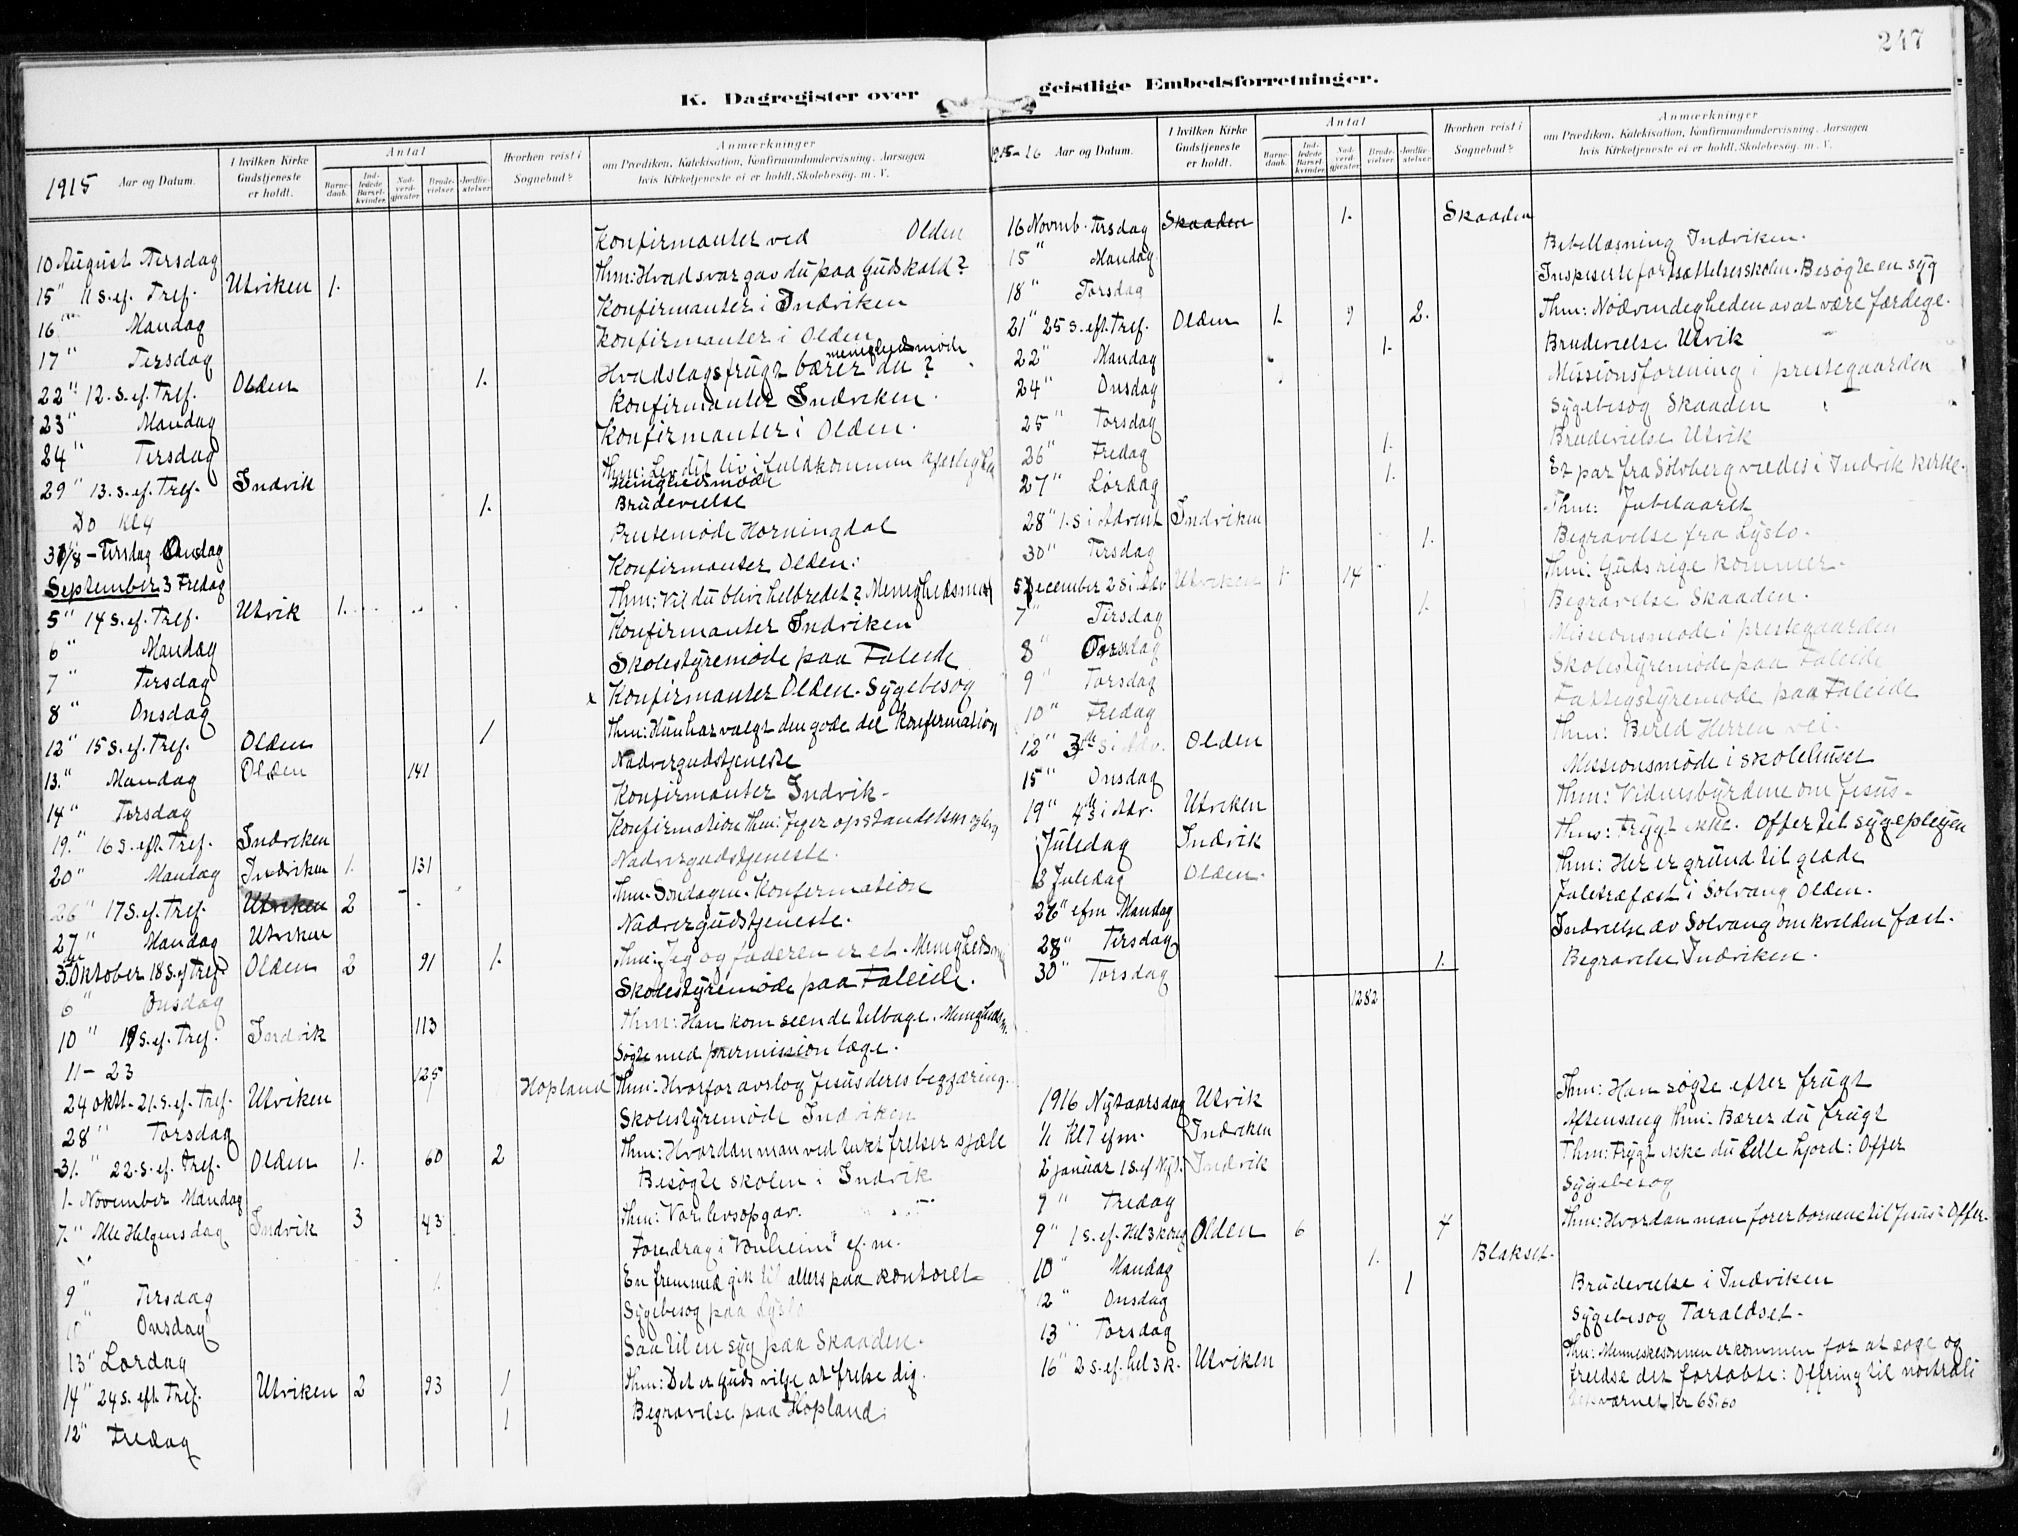 247
K. Dagregister over geistlige Embedsforretninger.
1915 Aar og Datum.
I hvilken Kirke Gudstjeneste er holdt.
Antal
Barnedaab.
Indledede Barselkvinder.
Nadverdgjæster.
Brudevielser.
Jordfæstelser.
Hvorhen reist i Sognebud?
Anmærkninger
om Prædiken, Katekisation, Konfirmandundervisning, Aarsagen
hvis Kirketjeneste ei er holdt, Skolebesøg. m. V.
10 August Tirsdag Konfirmanter ved Olden
15" 11 s. ef. Tref. Utviken 1. Thm: Hvad svar gav du paa Guds kald?
16" Mandag Konfirmanter i Indviken
17" Tirsdag Konfirmanter i Olden
22" 12. s. ef. Tref. Olden 1. Hvadslags frugt bærer du? menighedsmøde
23" Mandag Konfirmanter Indviken.
24" Tirsdag Konfirmanter i Olden.
29" 13. s. ef. Tref. Indvik Thm: Lev dit liv i fuldkommen kjærlighed menighedsmøde
Do Kl 4 1. Brudevielse
31/8 - Tirsdag Onsdag Prestemøde Horningdal
September 3 Fredag Konfirmanter Olden.
5" 14 s. ef. Tref. Utvik 1. Thm: Vil du blive helbredet? Menighedsmøde
6" Mandag Konfirmanter Indviken
7" Tirsdag Skolestyremøde paa Faleide
8" Onsdag x Konfirmanter Olden. Sygebesøg
12" 15 s. ef. Tref. Olden 1 Thm: Hun har valgt den gode del Konfirmation
13." Mandag Olden 141 Nadvergudstjeneste
14" Tirsdag Konfirmanter Indvik.
19." 16 s. eft. Tref. Indviken Konfirmation Thm: Jeg er opstandelsen og
20" Mandag Indviken 1. 131 Nadvergudstjeneste.
26" 17 s. ef. Tref. Utviken 2 Thm. Søndagen. Konfirmation
27" Mandag Utviken Nadvergudstjeneste.
3. Oktober 18 s. ef Tref. Olden 2 91 1. Thm: Jeg og faderen er et. Menighedsm
6" Onsdag Skolestyremøde paa Faleide.
10" 19 s. ef. Tref. Indvik 113 Thm: Han kom seende tilbage. Menighedsm.
11 - 23 Søgte med permission læge.
24 okt. 21. s. ef. Tref. Utviken 125 Hopland Thm: Hvorfor avslog Jesus deres begjæring.
28" Torsdag Skolestyremøde Indviken
31." 22. s. ef. Tref. Olden 1. 60 2 Thm: Hvordan man ved frelser sjæle
1. November Mandag Besøgte skolen i Indvik
7." Alle Helgensdag Indvik 3 43 Thm: Vor livsopgav.
Foredrag i "Vonheim" ef. m.
9" Tirsdag En fremmed gik til alters paa kontoret
Onsdag Sygebesøg paa Lyslo
13" Lørdag Saa til en syg paa Skaaden.
14" 24 s. eft Tref. Utviken 2 93 1 Thm: Det er Guds vilje at frelse dig.
12" Fredag 1 Begravelse paa Hopland.
1915-16 Aar og Datum.
I hvilken Kirke Gudstjeneste er holdt.
Antal
Barnedaab.
Indledede Barselkvinder.
Nadverdgjæster.
Brudevielser.
Jordfæstelser.
Hvorhen reist i Sognebud?
Anmærkninger
om Prædiken, Katekisation, Konfirmandundervisning, Aarsagen
hvis Kirketjeneste ei er holdt, Skolebesøg. m. V.
16 Novmb. Tirsdag Skaaden 1. Skaaden
15" Mandag Bibellæsning Indviken.
18" Torsdag Inspiserte fortsættelsesskolen. Besøgte en syg
21" 25 s. eft. Tref. Olden 1. 9 2. Thm: Nødvendigheden av at være færdige.
22" Mandag 1. Brudevielse Utvik
24" Onsdag Missionsforening i prestegaarden
25" Torsdag Sygebesøg Skaaden
26" Fredag 1. Brudevielse Utvik
27" Lørdag 1. Et par fra Sølvberg viedes i Indvik kirke.
28" 1. s i Advent Indviken Thm: Jubelaaret
30" Tirsdag 1. Begravelse fra Lyslo.
5 December 2 s i Adv Utviken 1. 14 Thm: Guds rige kommer.
7" Tirsdag 1. Begravelse Skaaden.
8" Onsdag Missionsmøde i prestegaarden
9" Torsdag Skolestyremøde paa Faleide
10" Fredag Fattigstyremøde paa Faleide
12" 3die s i Adv. Olden Thm: Bered Herren vei.
15" Onsdag Missionsmøde i skolehuset
19" 4de s i Adv. Utviken Thm: Vidnesbyrdene om Jesus.
Juledag Indvik Thm: Frygt ikke. Offer til sygepleien
2 Juledag Olden. Thm: Her er grund til glæde
26" efm Mandag Juletræfæst i Solvang Olden.
28" Tirsdag Indvielse av Solvang om kvelden fæst.
30" Torsdag 1. Begravelse Indviken.
1282
1916 Nytaarsdag Utvik Thm: Han søgte efter frugt
1/1 Kl 7 efm. Indviken Aftensang thm. Bærer du frugt
2 januar 1 s. ef Nyt. Indvik Thm: Frygt ikke du lille hjord: Offer
7" Fredag Sygebesøg
9" 1 s. ef. Hel 3 kong Olden 6 4 Thm: Hvordan man fører børnene til Jesus? Offer.
10" Mandag 1. Blakset.
12" Onsdag 1 Brudevielse i Indviken
13" Torsdag Sygebesøg Taraldset.
16" 2 s. ef. hel 3 k. Utviken Thm: Menneskesønnen er kommen for at søge og
frelse det fortabte: Offring til nøitrali
tetsvarnet Kr 65,60